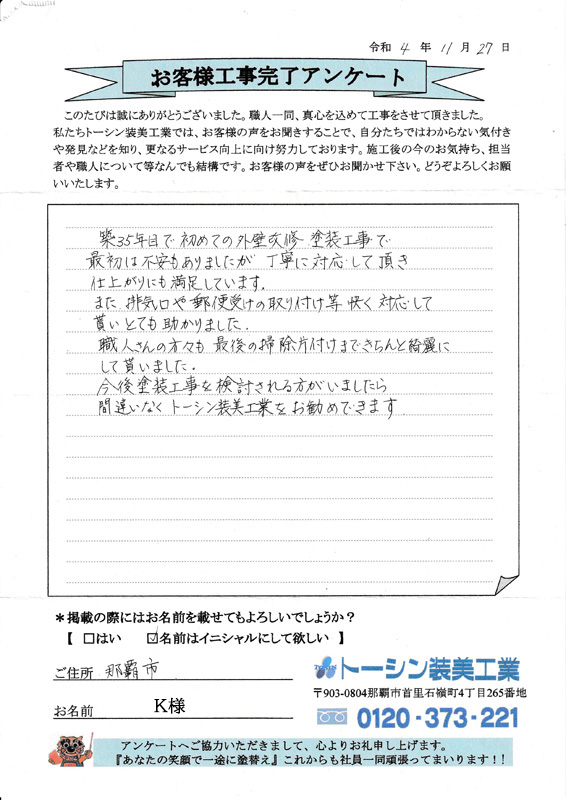 令和 4 年 11 月 27 日
お客様工事完了アンケート
このたびは誠にありがとうございました。職人一同、真心を込めて工事をさせて頂きました。
私たちトーシン装美工業では、お客様の声をお聞きすることで、自分たちではわからない気付き
や発見などを知り、更なるサービス向上に向け努力しております。施工後の今のお気持ち、担当
者や職人について等なんでも結構です。お客様の声をぜひお聞かせ下さい。どうぞよろしくお願
いいたします。
築35年目で初めての外壁改修 塗装工事で
最初は不安もありましたが 丁寧に対応して頂き
仕上がりにも満足しています.
また 排気口や郵便受けの取り付け等 快く対応して
貰いとても助かりました.
職人さんの方々も 最後の掃除片付けまできちんと綺麗に
して貰いました.
今後塗装工事を検討される方がいましたら
間違いなくトーシン装美工業をお勧めできます
*掲載の際にはお名前を載せてもよろしいでしょうか?
【 □はい ☑名前はイニシャルにして欲しい 】
ご住所 那覇市
お名前 K様
トーシン装美工業
〒903-0804那覇市首里石嶺町4丁目265番地
0120-373-221
アンケートへご協力いただきまして、心よりお礼申し上げます。
『あなたの笑顔で一途に塗替え』これからも社員一同頑張ってまいります!!